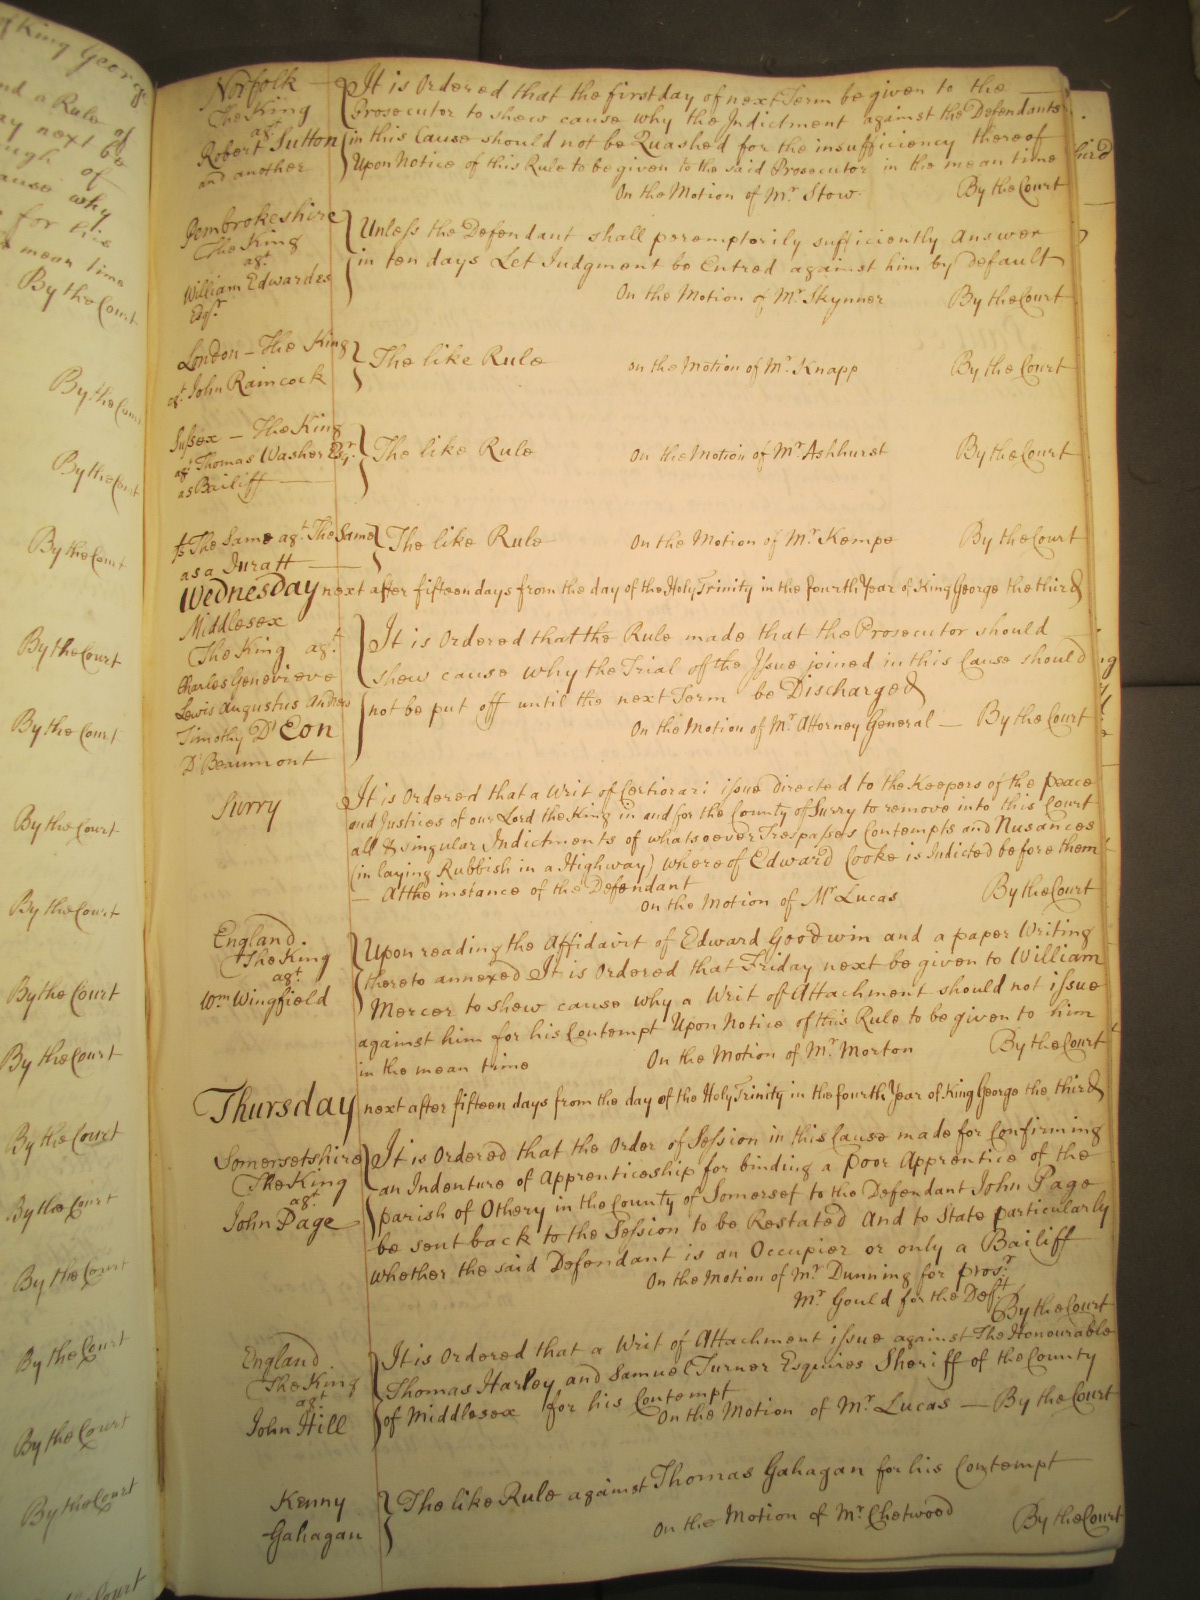 of King George
and a Rule of
may next be
ough of
ause why
for this
mean time
By the Court
By the Cou
By the Court
By the Court
By the Court
By the Court
By the Court
By the Court
By the Court
By the Court
By the Court
By the Court
By the Court
By the Court
By the Court
By the Court
Court
Norfolk
The King
agt
Robert Sutton
and another
It is Ordered that the first day of next Term be given to the
Prosecutor to shew cause why the Indictment against the Defendants
in this Cause should not be Quashed for the insufficiency thereof
Upon Notice of this Rule to be given to the said Prosecutor in the mean time
On the Motion of Mr. Stow. By the Court
Pembrokeshire
The King
agt
William Edwardes
Esqr
Unless the Defendant shall peremptorily sufficiently Answer
in ten days Let Judgment be Entred against him by Default
On the Motion of Mr. Skynner By the Court
London - The King
agt. John Raincock
The like Rule on the Motion of Mr. Knapp By the Court
Sussex - The King
agt Thomas Washer Esqr.
as Bailiff
The like Rule On the Motion of Mr. Ashhurst By the Court
The Same agt. The Same
as a Juratt
The like Rule On the Motion of Mr. Kempe By the Court
Wednesday next after fifteen days from the day of the Holy Trinity in the fourth Year of King George the third
Middlesex
The King agt.
Charles Genevieve
Lewis Augustus Andres
Timothy D'Eon
D'Beaumont
It is Ordered that the Rule made that the Prosecutor should
shew cause why the Trial of the Issue joined in this Cause should
not be put off until the next Term be Discharged
On the Motion of Mr. Attorney General - By the Court
Surry
It is Ordered that a Writ of Certiorari issue directed to the Keepers of the peace
and Justices of our Lord the King in and for the County of Surry to remove into this Court
all & singular Indictments of whatsoever Trespasses Contempts and Nusances
(in laying Rubbish in a Highway) whereof Edward Cooke is Indicted before them
- At the instance of the Defendant
On the Motion of Mr Lucas By the Court
England.
The King
agt.
Wm Wingfield
Upon reading the Affidavit of Edward Goodwin and a paper Writing
thereto annexed It is Ordered that Friday next be given to William
Mercer to shew cause why a Writ of Attachment should not issue
against him for his Contempt Upon Notice of this Rule to be given to him
in the mean time On the Motion of Mr. Morton By the Court
Thursday next after fifteen days from the day of the Holy Trinity in the fourth Year of King George the third
Somersetshire
The King
agt
John Page
It is Ordered that the Order of Session in this Cause made for Confirming
an Indenture of Apprenticeship for binding a poor Apprentice of the
parish of Othery in the County of Somerset to the Defendant John Page
be sent back to the Session to be Restated And to State particularly
whether the said Defendant is an Occupier or only a Bailiff
On the Motion of Mr. Dunning for prosr.
Mr Gould for the Deft.
By the Court
England.
The King
agt
John Hill
It is Ordered that a Writ of Attachment issue against The Honourable
Thomas Harley and Samuel Turner Esquires Sheriff of the County
of Middlesex for his Contempt
On the Motion of Mr. Lucas - By the Court
Kenny
Gahagan
The like Rule against Thomas Gahagan for his Contempt
On the Motion of Mr. Chetwood By the Court